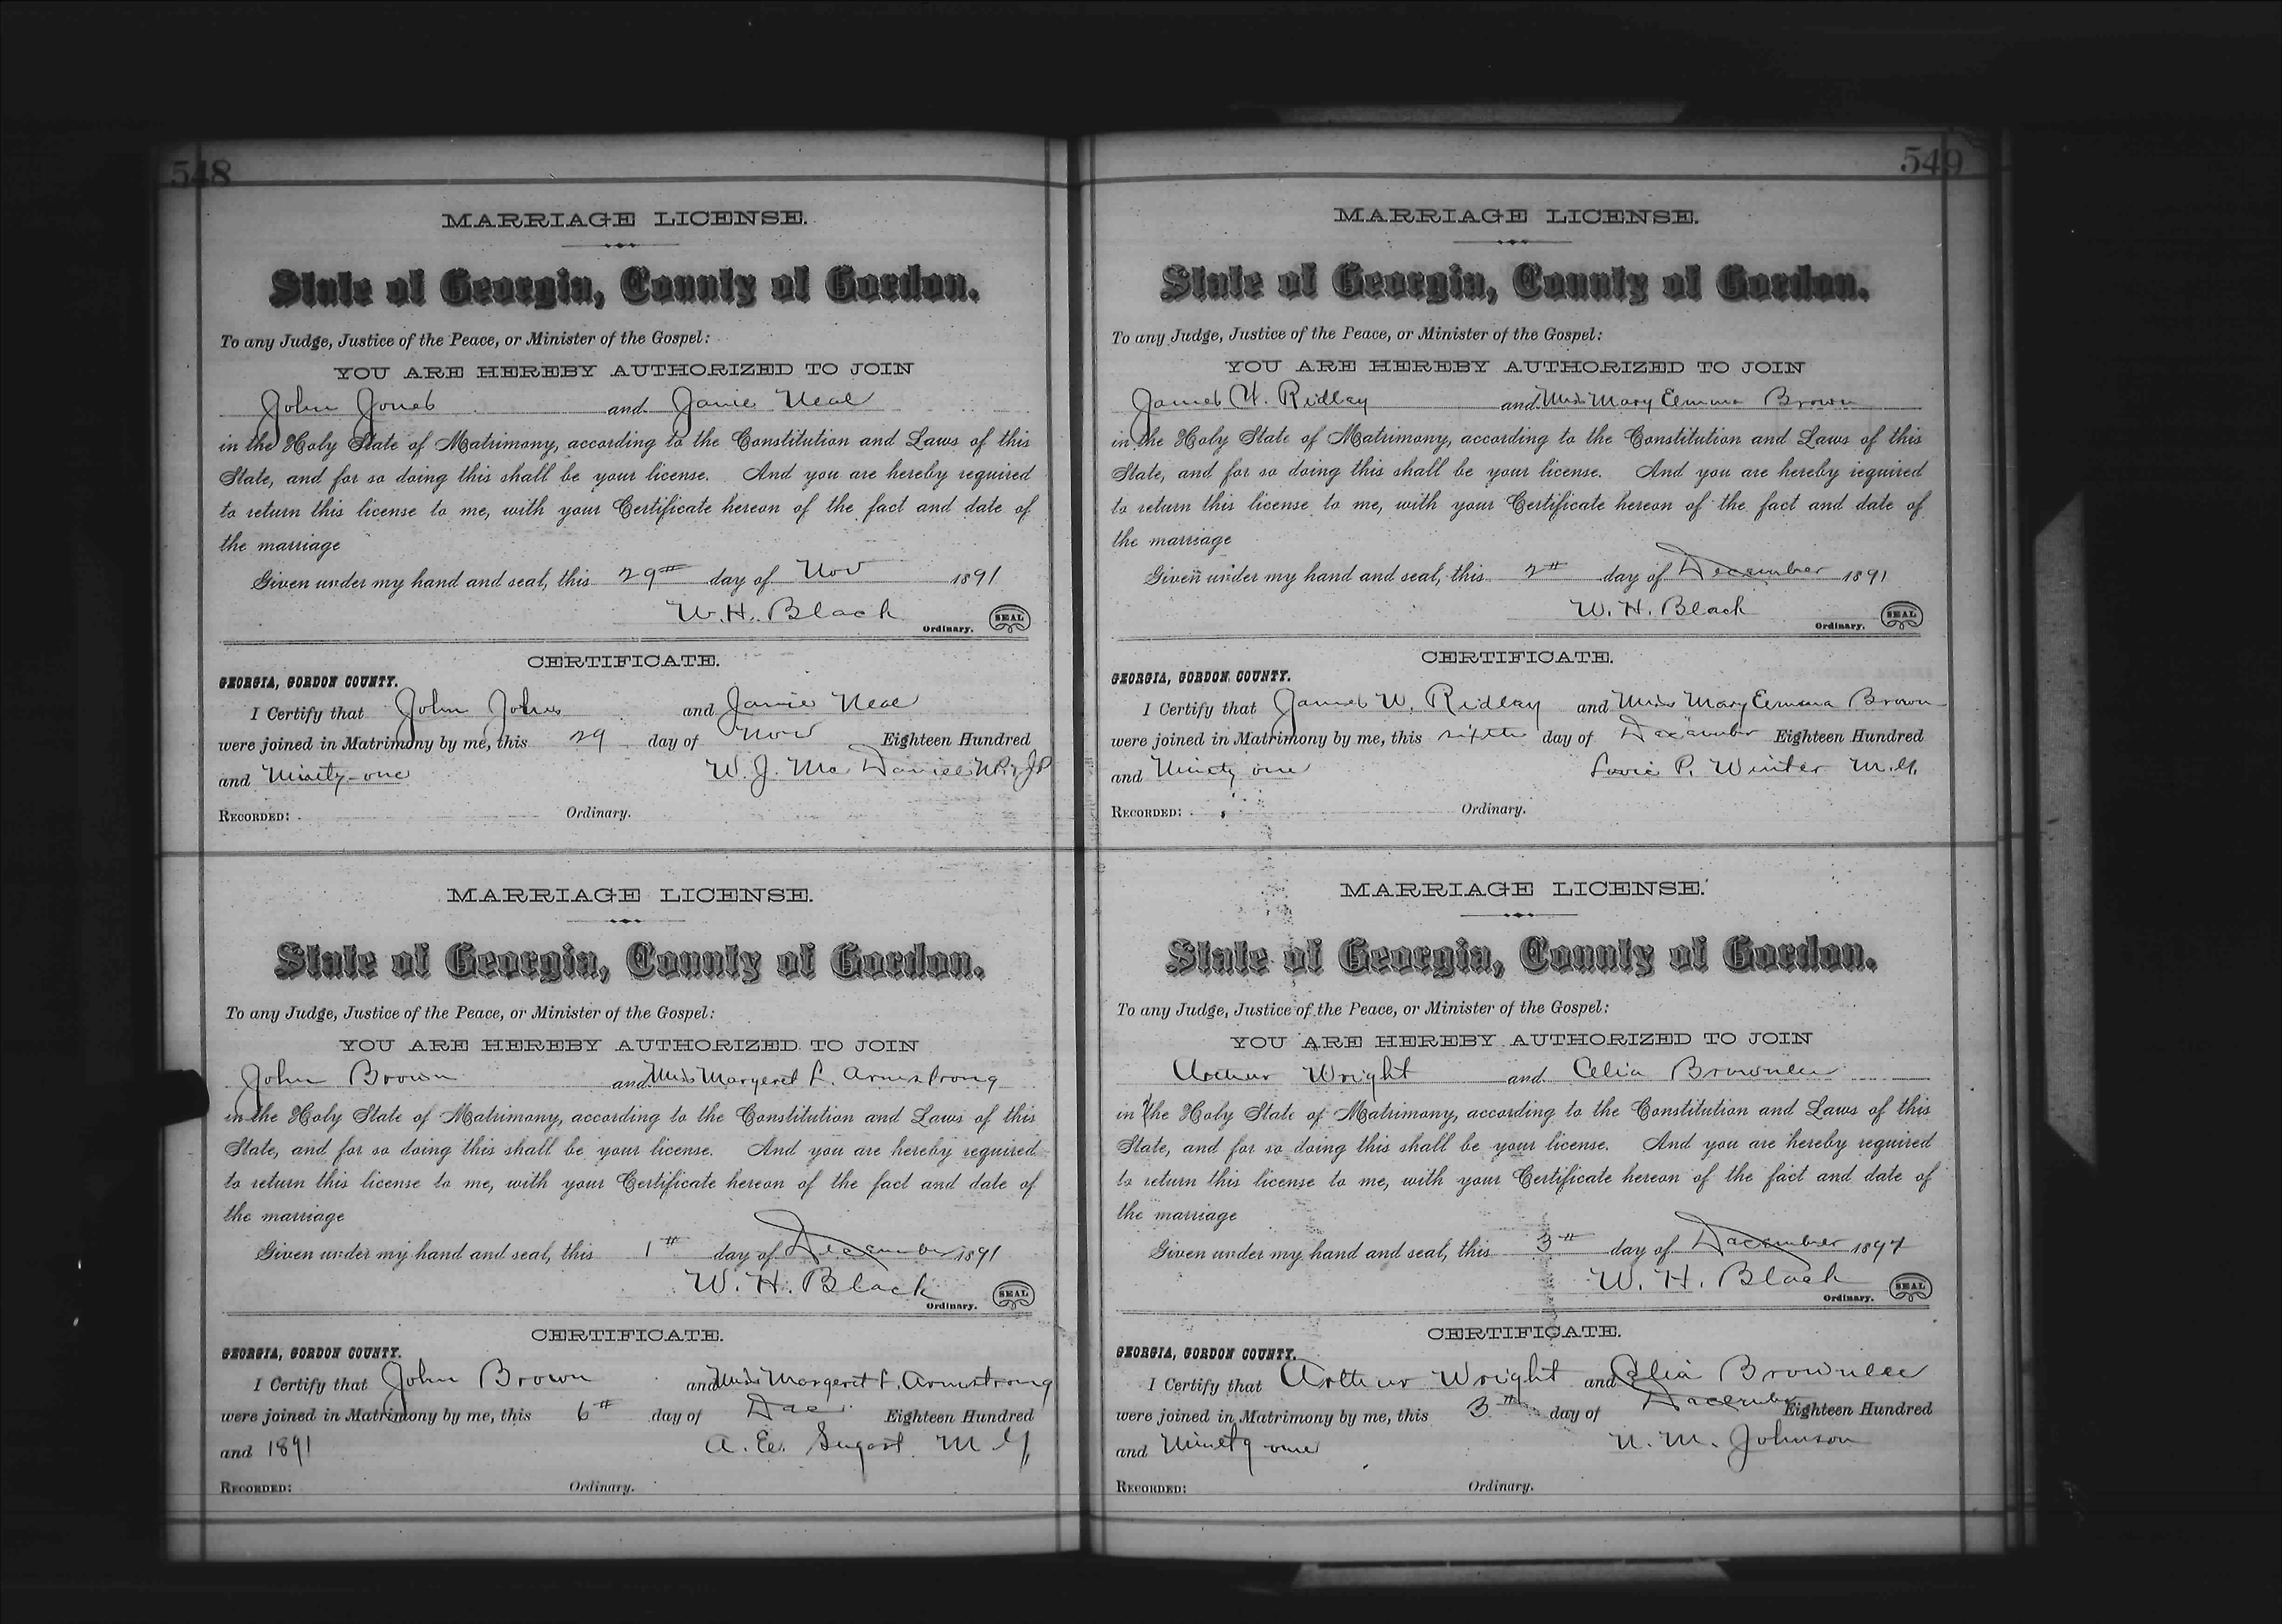 548
MARRIAGE LICENSE.
State of Georgia, County of Gordon.
To any Judge, Justice of the Peace, or Minister of the Gospel:
YOU ARE HEREBY AUTHORIZED TO JOIN
John Jones and Janie Neal
in the Holy State of Matrimony, according to the Constitution and Laws of this
State, and for so doing this shall be your license. And you are hereby required
to return this license to me, with your Certificate hereon of the fact and date of
the marriage
Given under my hand and seal, this 29th day of Nov 1891
W. H. Black
Ordinary. SEAL
CERTIFICATE.
GEORGIA, GORDON COUNTY.
I Certify that John and Janie Neal
were joined in Matrimony by me, this 29 day of Nov Eighteen Hundred
and Ninety-one W. J. Mc Daniel N.P. & J.P.
RECORDED: Ordinary.
MARRIAGE LICENSE.
State of Georgia, County of Gordon.
To any Judge, Justice of the Peace, or Minister of the Gospel:
YOU ARE HEREBY AUTHORIZED TO JOIN
John Brown and Miss Margeret L. Armstrong
in the Holy State of Matrimony, according to the Constitution and Laws of this
State, and for so doing this shall be your license. And you are hereby required
to return this license to me, with your Certificate hereon of the fact and date of
the marriage
Given under my hand and seal, this 1th day of December 1891
W. H. Black
Ordinary. SEAL
CERTIFICATE.
GEORGIA, GORDON COUNTY.
I Certify that John Brown and Miss Margeret L. Armstrong
were joined in Matrimony by me, this 6th day of Dec. Eighteen Hundred
and 1891 A. M. G.
RECORDED: Ordinary.
549
MARRIAGE LICENSE.
State of Georgia, County of Gordon.
To any Judge, Justice of the Peace, or Minister of the Gospel:
YOU ARE HEREBY AUTHORIZED TO JOIN
James W. Ridley and Miss Mary Emma Brown
in the Holy State of Matrimony, according to the Constitution and Laws of this
State, and for so doing this shall be your license. And you are hereby required
to return this license to me, with your Certificate hereon of the fact and date of
the marriage
Given under my hand and seal, this 2th day of December 1891
W. H. Black
Ordinary. SEAL
CERTIFICATE.
GEORGIA, GORDON COUNTY.
I Certify that James W. Ridley and Miss Mary Emma Brown
were joined in Matrimony by me, this sixth day of December Eighteen Hundred
and Ninety one P. Winter M. G.
RECORDED: Ordinary.
MARRIAGE LICENSE.
State of Georgia, County of Gordon.
To any Judge, Justice of the Peace, or Minister of the Gospel:
YOU ARE HEREBY AUTHORIZED TO JOIN
Arthur Wright and Celia Brownlee
in the Holy State of Matrimony, according to the Constitution and Laws of this
State, and for so doing this shall be your license. And you are hereby required
to return this license to me, with your Certificate hereon of the fact and date of
the marriage
Given under my hand and seal, this 3th day of December
W. H. Black
Ordinary. SEAL
CERTIFICATE.
GEORGIA, GORDON COUNTY.
I Certify that Arthur Wright and Celia Brownlee
were joined in Matrimony by me, this 3th day of December Eighteen Hundred
and Ninety one N. M. Johnson
RECORDED: Ordinary.